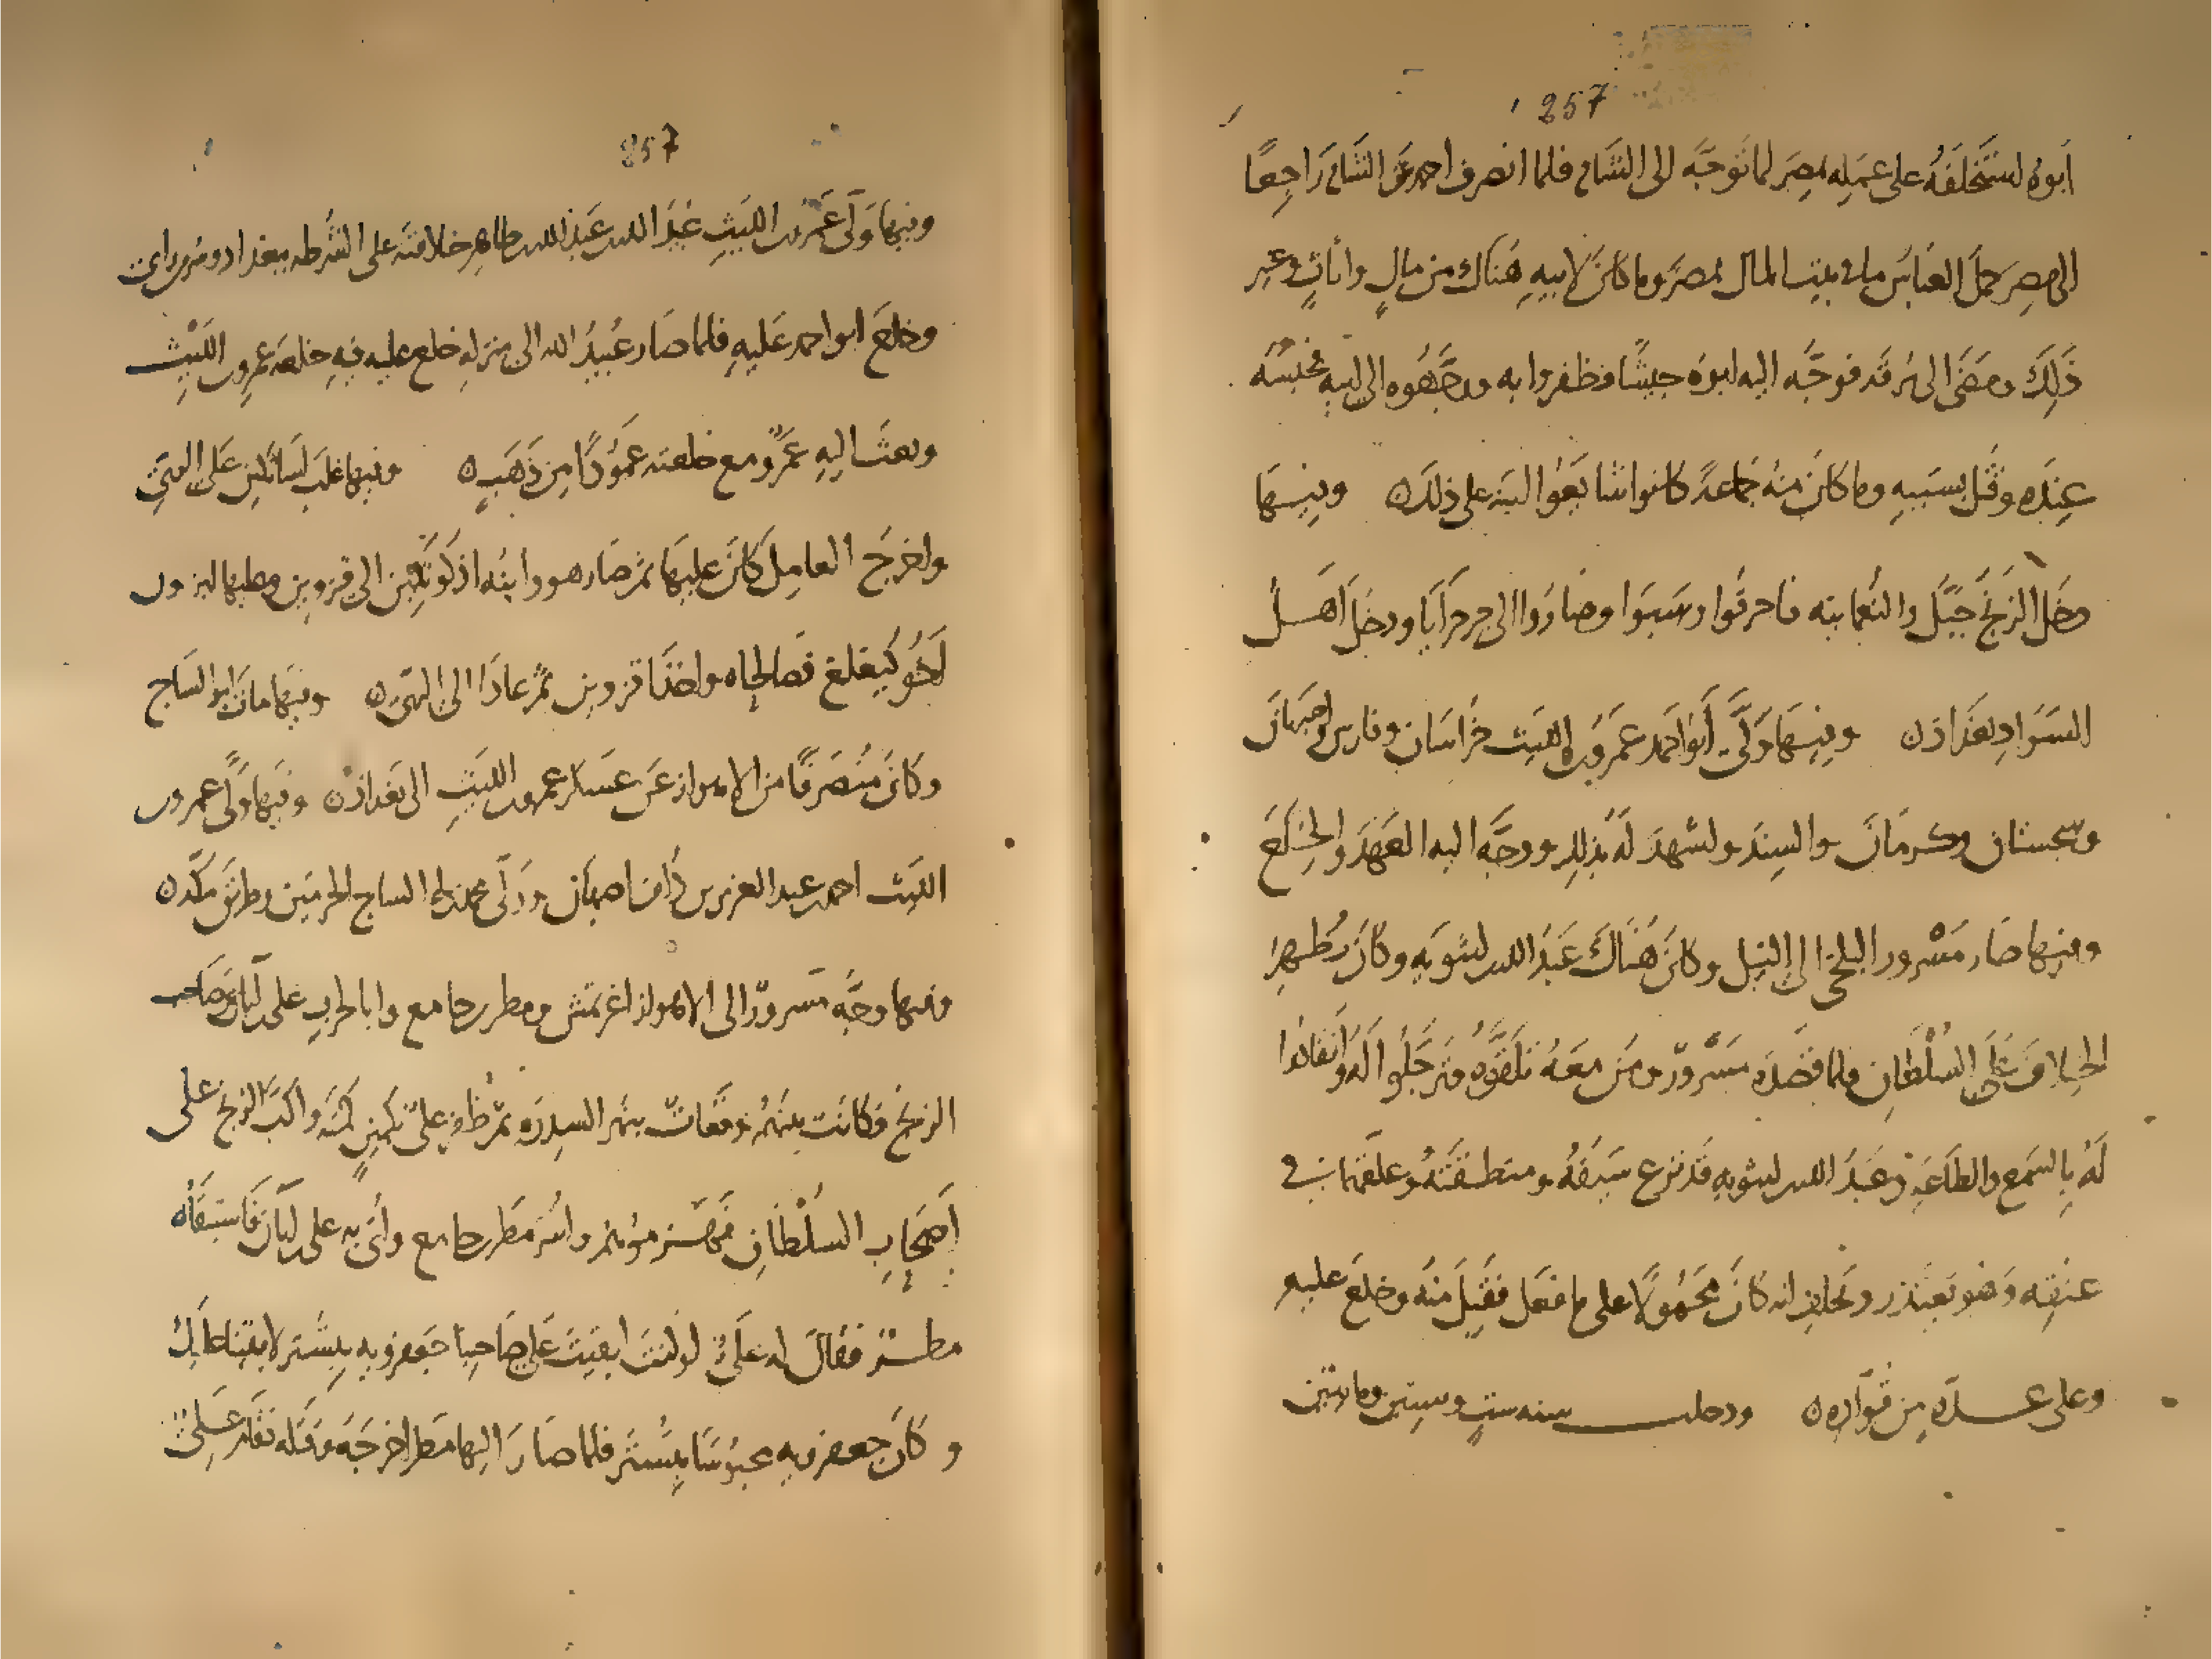 257
ابوه استخلفه على عمله بمصر لما توجه الى الشام فلما انصرف احمد عن الشام راجعًا
الى مصر حمل العباس ما في بيت المال بمصر وما كان لابيه هناك من مالٍ واثاثٍ وغير
ذلك ومضى الى برقه فوجّه اليه ابوه جيشًا فظفروا به ووجّهوه الى ابيه فحبسه
عنده وقتل بسببه وما كان منه جماعةً كانوا شايعوا ابنه على ذلك وفيها
دخل الزنج جبّل والنعمانيه فاحرقوا وسبوا وصاروا الى جرجرايا ودخل اهل
السواد بغداذ وفيها ولّى ابو احمد عمرو بن الليث خراسان وفارس واصبهان
وسجستان وكرمان والسند واشهد له بذلك ووجّه اليه العهد والخلع
وفيها صار مسرور البلخي الى النيل وكان هناك عبد الله ليثويه وكان يظهر
الخلاف على السلطان فلما قصده مسرورٌ ومن معه تلقّوه فترجلوا له وانقادوا
له بالسمع والطاعة وعبد الله ليثويه قد نزع سيفه ومنطقته وعلقهما في
عنقه وهو يعتذر ويحلف انه كان محمولًا على ما فعل فقبل منه وخلع عليه
وعلى عدّه من قوّاده ودخلت سنه ستٍ وستين ومايتين
257
وفيها ولّى عمرو بن الليث عبيد الله عبد الله طاهر خلافته على الشرطه ببغداد وسر من راى
وخلع ابو احمد عليه فلما صار عبيد الله الى منزله خلع عليه فيه خلعه عمرو بن الليث
وبعث اليه عمرٌو مع خلعته عمودًا من ذهبٍ وفيها غلب اساتكين على الريّ
واخرج العامل كان عليها ثم صار هو وابنه اذكوتكين الى قزوين وعليها ابرون
اخو كيغلغ فصالحاه واخذا قزوين ثم عادا الى الريّ وفيها مات ابو الساج
وكان منصرفًا من الاهواز عن عسكر عمرو بن الليث الى بغداذ وفيها ولّى عمرو بن
الليث احمد عبد العزيز بن دلف اصبهان وولّى محمد بن ابي الساج الحرمين وطريق مكّه
وفيها وجّه مسرورٌ الى الاهواز اغرتمش ومطر بن جامع وابا لحرب على بن ابان صاحب
الزنج فكانت بينهم وقعاتٌ بنهر السدره ثمّ ظفر علىٌّ بكمينٍ كمنه واكبّ الزنج على
اصحاب السلطان فهزموهم واسر مطر بن جامع واتي به على بن ابان فاستبقاه
مطرٌ فقال له علىٌّ لو كنت ابقيت على صاحبنا جعفرويه بتستر لابقينا عليك
وكان جعفرويه محبوسًا بتستر فلما صار اليها مطر اخرجه وقتله فقام علىٌّ